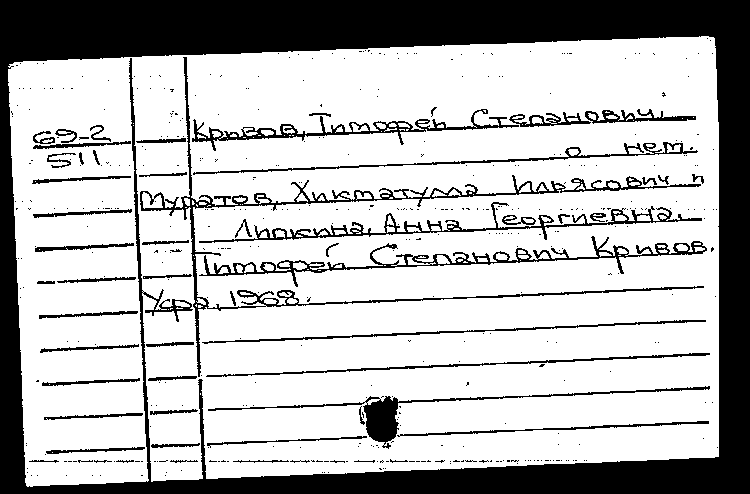 69-2
511
Кривов, Тимофей Степанович,
о нем.
Муратов, Хикматулла Ильясович и
Липкина, Анна Георгиевна.
Тимофей Степанович Кривов.
Уфа, 1968.